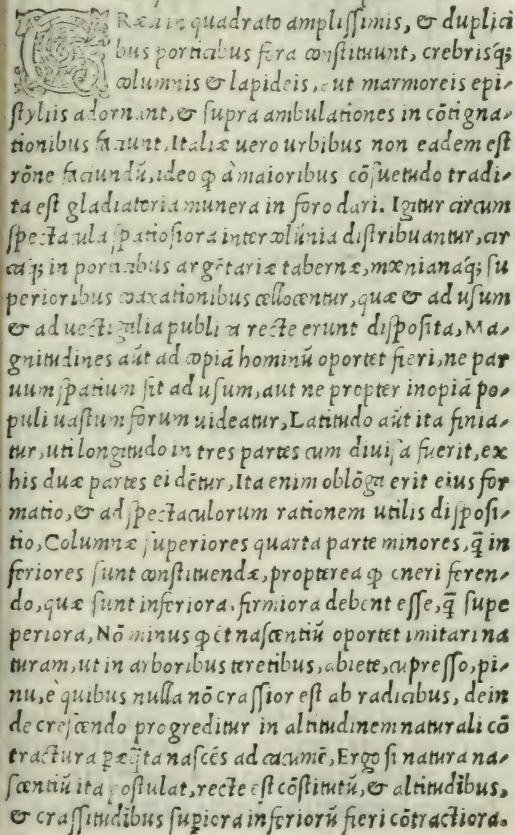 GRæci in quadrato amplissimis, & duplici
bus porticibus fora constituunt, crebrisq;
columnis & lapideis, aut marmoreis epi-
styliis adornant, & supra ambulationes in cōtigna-
tionibus faciunt, Italiæ uero urbibus non eadem est
rōne faciundū, ideo ꝙ à maioribus cōsuetudo tradi-
ta est gladiatoria munera in foro dari. Igitur circum
spectacula spatiosiora intercolūnia distribuantur, cir
caq; in porticibus argētariæ tabernæ, mœnianaq; su
perioribus coaxationibus collocentur, quæ & ad usum
& ad uectigalia publica recte erunt disposita, Ma-
gnitudines aūt ad copiā hominū oportet fieri, ne par
uum spatium sit ad usum, aut ne propter inopiā po-
puli uastum forum uideatur, Latitudo aūt ita finia-
tur, uti longitudo in tres partes cum diuisa fuerit, ex
his duæ partes ei dētur, Ita enim oblōga erit eius for
matio, & ad spectaculorum rationem utilis disposi-
tio, Columnæ superiores quarta parte minores, q̄ in
feriores sunt constituendæ, propterea ꝙ cneri feren-
do, quæ sunt inferiora. firmiora debent esse, q̄ supe
periora, Nō minus ꝙ et nascentiū oportet imitari na
turam, ut in arboribus teretibus, abiete, cupresso, pi-
nu, è quibus nulla nō crassior est ab radicibus, dein
de crescendo progreditur in altitudinem naturali cō
tractura ꝑæq̄ta nascēs ad cacumē, Ergo si natura na-
scentiū ita postulat, recte est cōstitutū, & altitudibus,
& crassitudibus supiora inferiorū fieri cōtractiora.